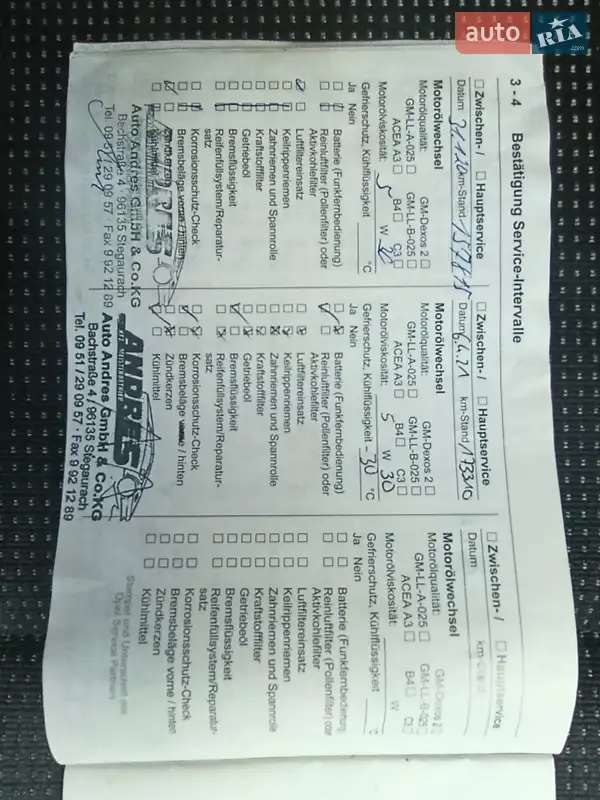 auto RIA .com
3 - 4 Bestätigung Service-Intervalle
Zwischen- / Hauptservice
Datum km-Stand
Motorölwechsel
Motorölqualität: GM-Dexos 2
GM-LL-A-025 GM-LL-B-025
ACEA A3 B4 C3
Motorölviskosität: 5 W 30
Gefrierschutz, Kühlflüssigkeit °C
Ja Nein
Batterie (Funkfernbedienung)
Reinluftfilter (Pollenfilter) oder
Aktivkohlefilter
Luftfiltereinsatz
Keilrippenriemen
Zahnriemen und Spannrolle
Kraftstofffilter
Getriebeöl
Bremsflüssigkeit
Reifenfüllsystem/Reparatur-
satz
Korrosionsschutz-Check
Bremsbeläge vorne / hinten
Auto Andres GmbH & Co.KG
Bachstraße 4 · 96135 Stegaurach
Tel. 09 51 / 29 09 57 · Fax 9 92 12 89
Zwischen- / Hauptservice
Datum 6.4.21 km-Stand 173310
Motorölwechsel
Motorölqualität: GM-Dexos 2
GM-LL-A-025 GM-LL-B-025
ACEA A3 B4 C3
Motorölviskosität: 5 W 30
Gefrierschutz, Kühlflüssigkeit -30 °C
Ja Nein
Batterie (Funkfernbedienung)
Reinluftfilter (Pollenfilter) oder
Aktivkohlefilter
Luftfiltereinsatz
Keilrippenriemen
Zahnriemen und Spannrolle
Kraftstofffilter
Getriebeöl
Bremsflüssigkeit
Reifenfüllsystem/Reparatur-
satz
Korrosionsschutz-Check
Bremsbeläge vorne / hinten
Zündkerzen
Kühlmittel
ANDRES
Auto Andres GmbH & Co.KG
Bachstraße 4 / 96135 Stegaurach
Tel. 09 51 / 29 09 57 · Fax 9 92 12 89
Zwischen- / Hauptservice
Datum km-Stand
Motorölwechsel
Motorölqualität: GM-Dexos 2
GM-LL-A-025 GM-LL-B-025
ACEA A3 B4 C3
Motorölviskosität: W
Gefrierschutz, Kühlflüssigkeit °C
Ja Nein
Batterie (Funkfernbedienung)
Reinluftfilter (Pollenfilter) oder
Aktivkohlefilter
Luftfiltereinsatz
Keilrippenriemen
Zahnriemen und Spannrolle
Kraftstofffilter
Getriebeöl
Bremsflüssigkeit
Reifenfüllsystem/Reparatur-
satz
Korrosionsschutz-Check
Bremsbeläge vorne / hinten
Zündkerzen
Kühlmittel
Stempel und Unterschrift des
Opel Service Partners